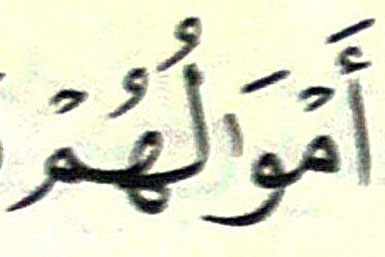 أَمْوَالُهُمْ